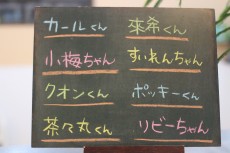 カールくん
來希くん
小梅ちゃん
すいれんちゃん
クオンくん
ポッキーくん
茶々丸くん
リビーちゃん